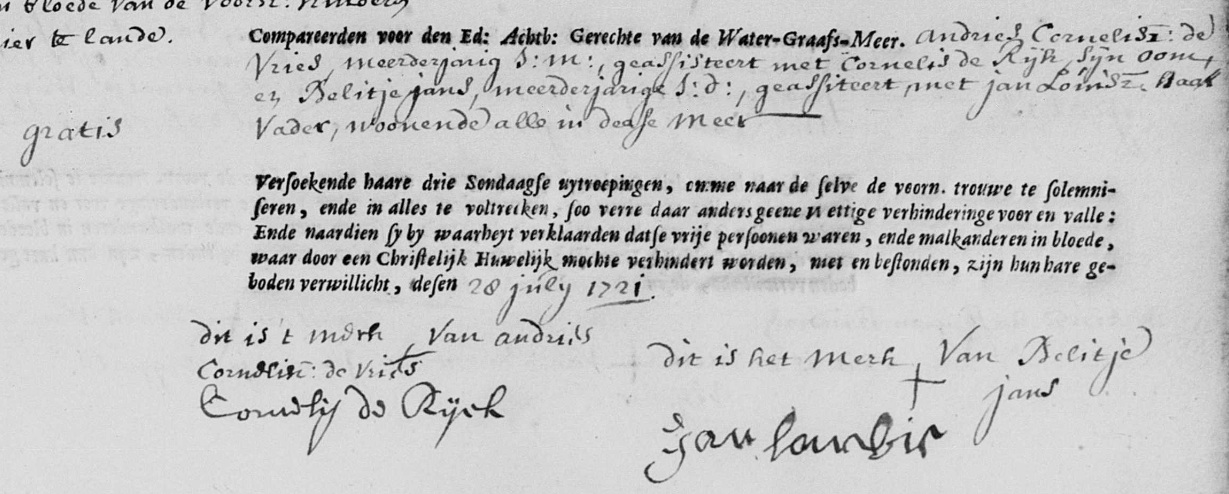 bloede van de Voorst:
hier te lande.
Compareerden voor den Ed: Achtb: Gerechte van de Water-Graafs-Meer. Andries Cornelisz: de
Vries, meerderjarig J: m:, geassisteert met Cornelis de Rijk, sijn oom,
en Belitje jans, meerderjarige J: d:, geassiteert, met jan Loüisz. Haar
gratis
Vader, woonende alle in deese Meer
Versoekende haare drie Sondaagse uytroepingen, omme naar de selve de voorn. trouwe te solemni-
seren, ende in alles te voltrecken, soo verre daar anders geene Wettige verhinderinge voor en valle:
Ende naardien sy by waarheyt verklaarden datse vrije persoonen waren, ende malkanderen in bloede,
waar door een Christelijk Huwelijk mochte verhindert worden, niet en bestonden, zijn hunhare ge-
boden verwillicht, desen 28 july 1721.
dit is 't merk van andries
Cornelisz: de Vries
Cornelis de Rijck
dit is het merk van Belitje
jans
Jan